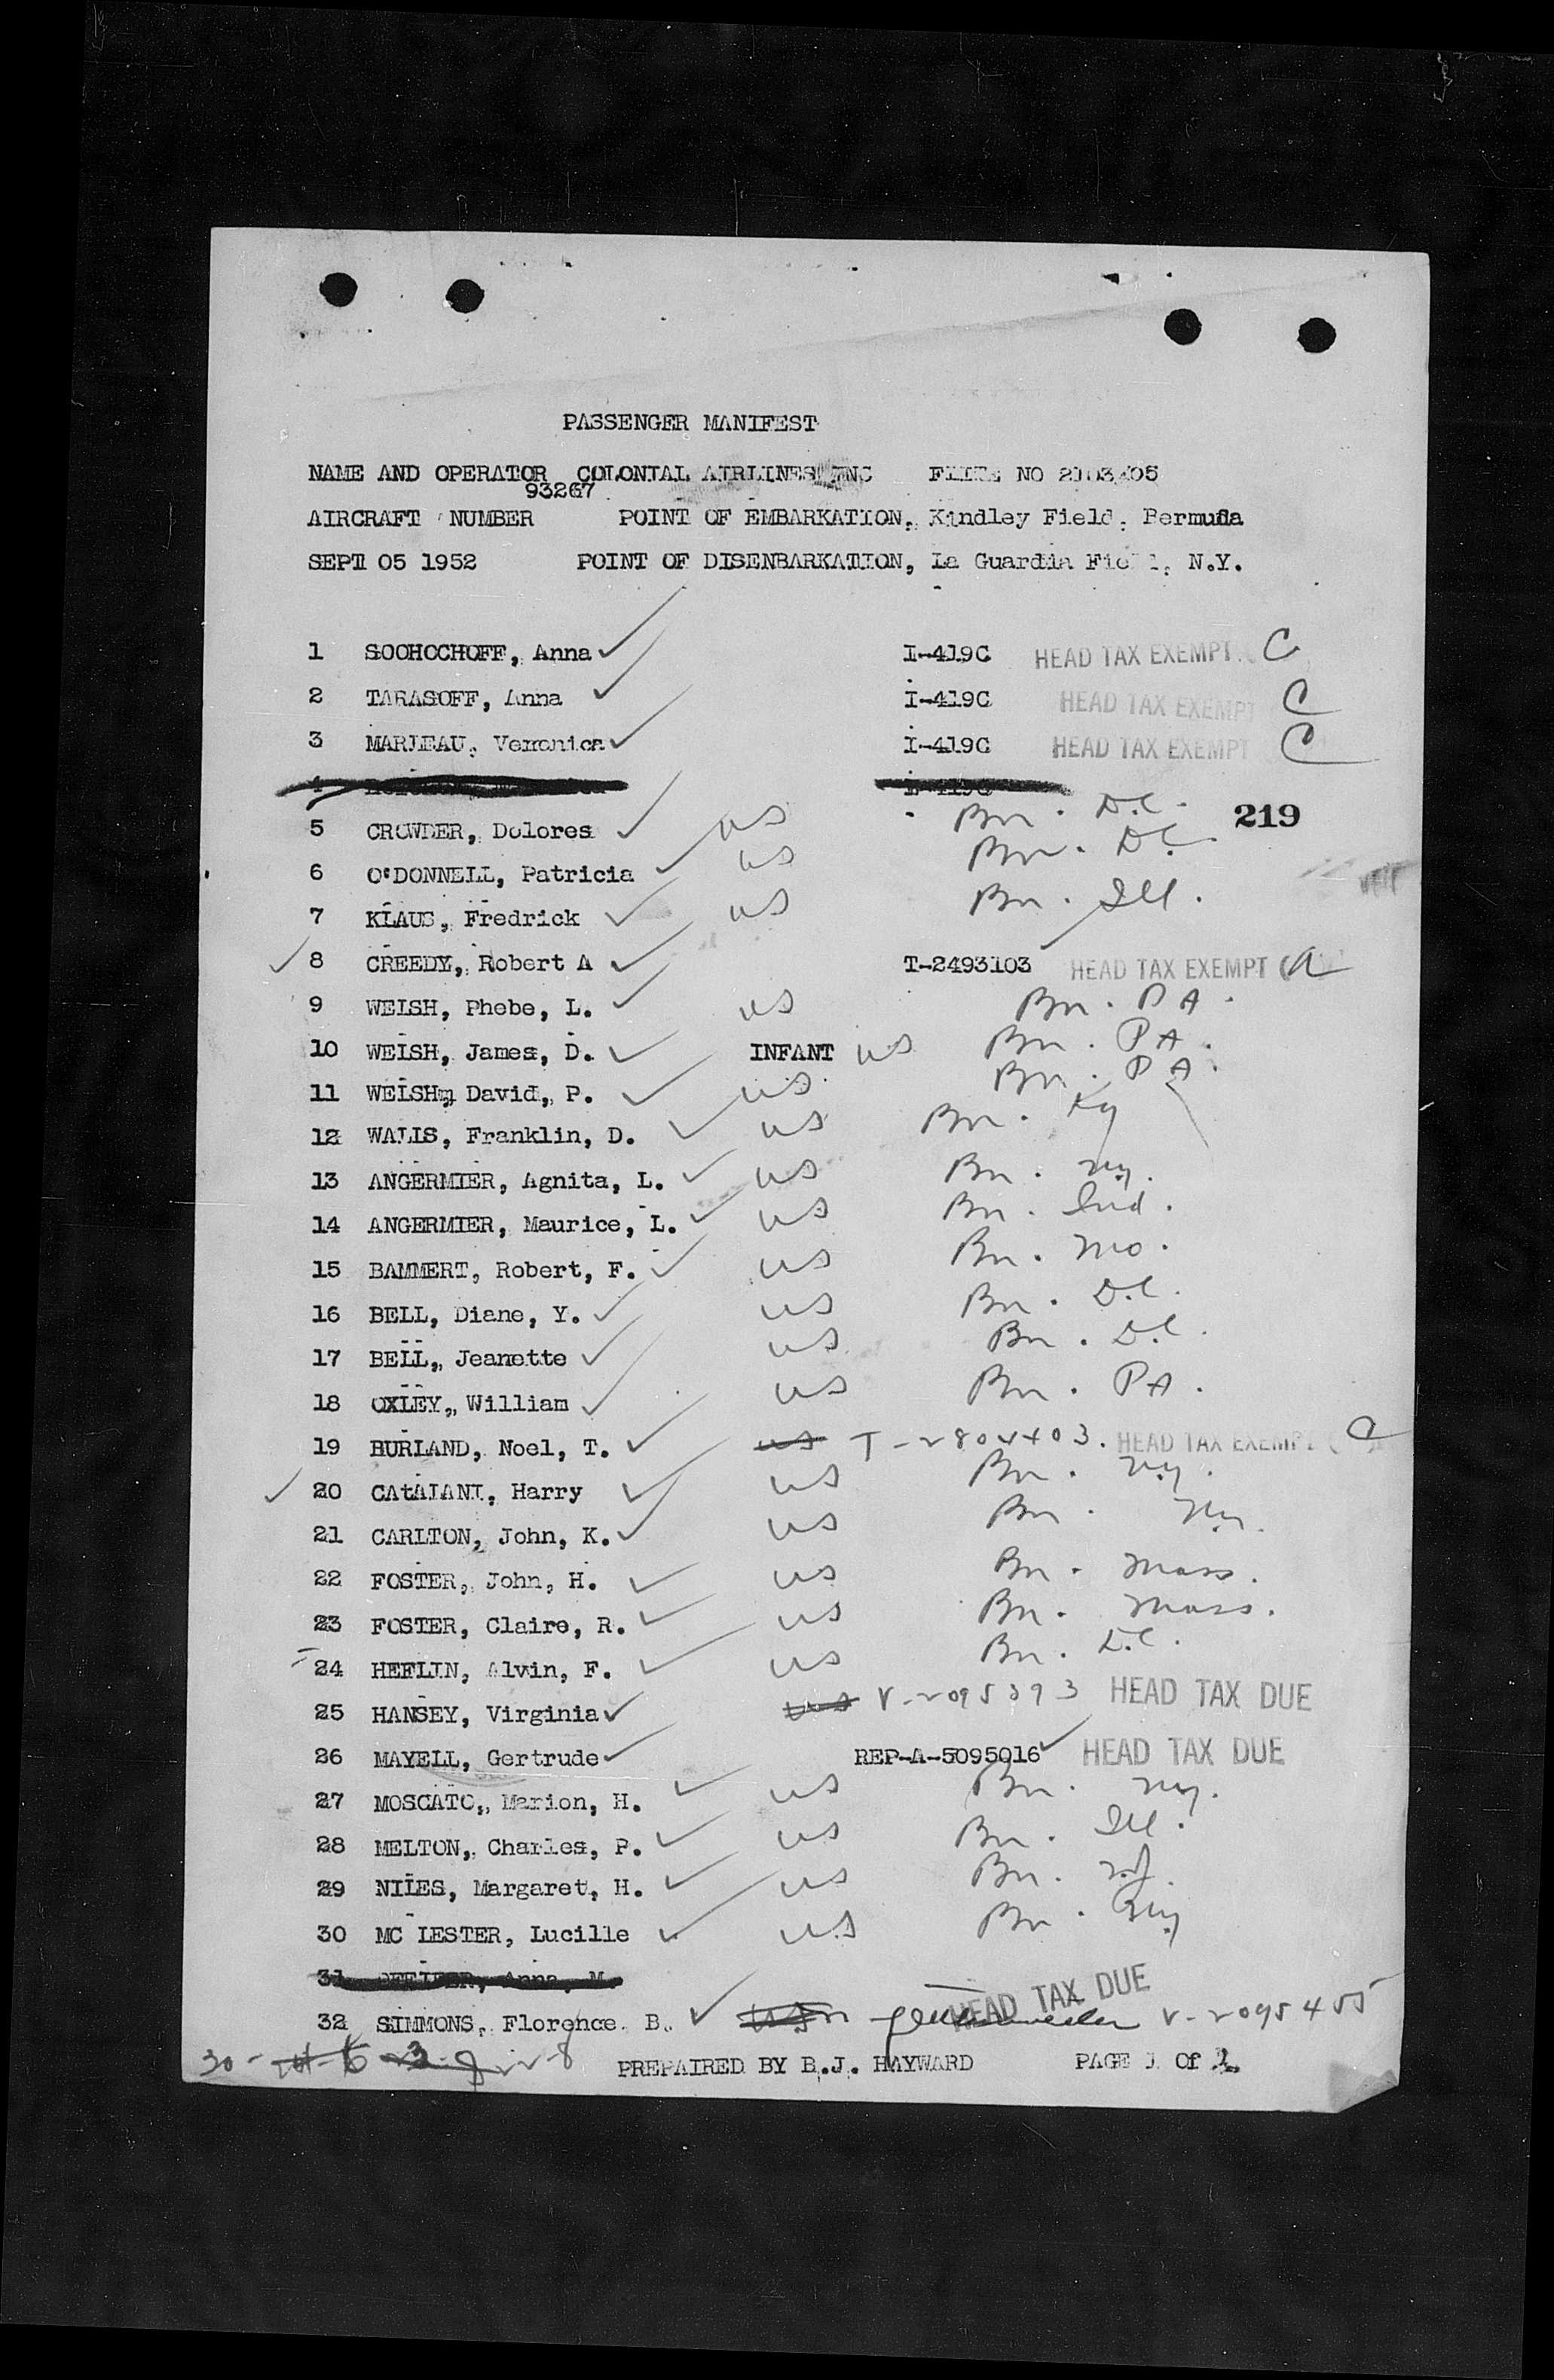 PASSENGER MANIFEST
NAME AND OPERATOR COLONIAL AIRLINES INC NO
93267
AIRCRAFT NUMBER POINT OF EMBARKATION, Kindley Field, Bermuda
SEPT 05 1952 POINT OF DISENBARKATION, La Guardia Field, N.Y.
1 SOOHOCHOFF, Anna I-419C HEAD TAX EXEMPT C
2 TARASOFF, Anna I-419C HEAD TAX EXEMPT C
3 MARLEAU, Veronica I-419C HEAD TAX EXEMPT C
4
5 CROWDER, Dolores US Bn. D.C. 219
6 O'DONNELL, Patricia US Bn. D.C.
7 KLAUS, Fredrick US Bn. Ill.
8 CREEDY, Robert A T-2493103 HEAD TAX EXEMPT (A
9 WELSH, Phebe, L. US Bn. PA.
10 WELSH, James, D. INFANT US Bn. PA.
11 WELSH, David, P. US Bn. PA.
12 WALIS, Franklin, D. US Bn. Ky
13 ANGERMIER, Agnita, L. US Bn. NY.
14 ANGERMIER, Maurice, L. US Bn. Ind.
15 BAMMERT, Robert, F. US Bn. Mo.
16 BELL, Diane, Y. US Bn. D.C.
17 BELL, Jeanette US Bn. D.C.
18 OXLEY, William US Bn. PA.
19 BURLAND, Noel, T. US HEAD TAX EXEMPT
20 CAtALANI, Harry US Bn. NY.
21 CARLTON, John, K. US Bn. NY.
22 FOSTER, John, H. US Bn. Mass.
23 FOSTER, Claire, R. US Bn. Mass.
24 HEFLIN, Alvin, F. US Bn. D.C.
25 HANSEY, Virginia US V-2095393 HEAD TAX DUE
26 MAYELL, Gertrude REP-A-5095016 HEAD TAX DUE
27 MOSCATO, Marion, H. US Bn. NY.
28 MELTON, Charles, P. US Bn. Ill.
29 NILES, Margaret, H. US Bn. N.J.
30 MC LESTER, Lucille US Bn. NY
31 Anna, M.
32 SIMMONS, Florence B. HEAD TAX DUE V-2095455
30-
PREPAIRED BY B.J. HAYWARD PAGE 1 Of 2